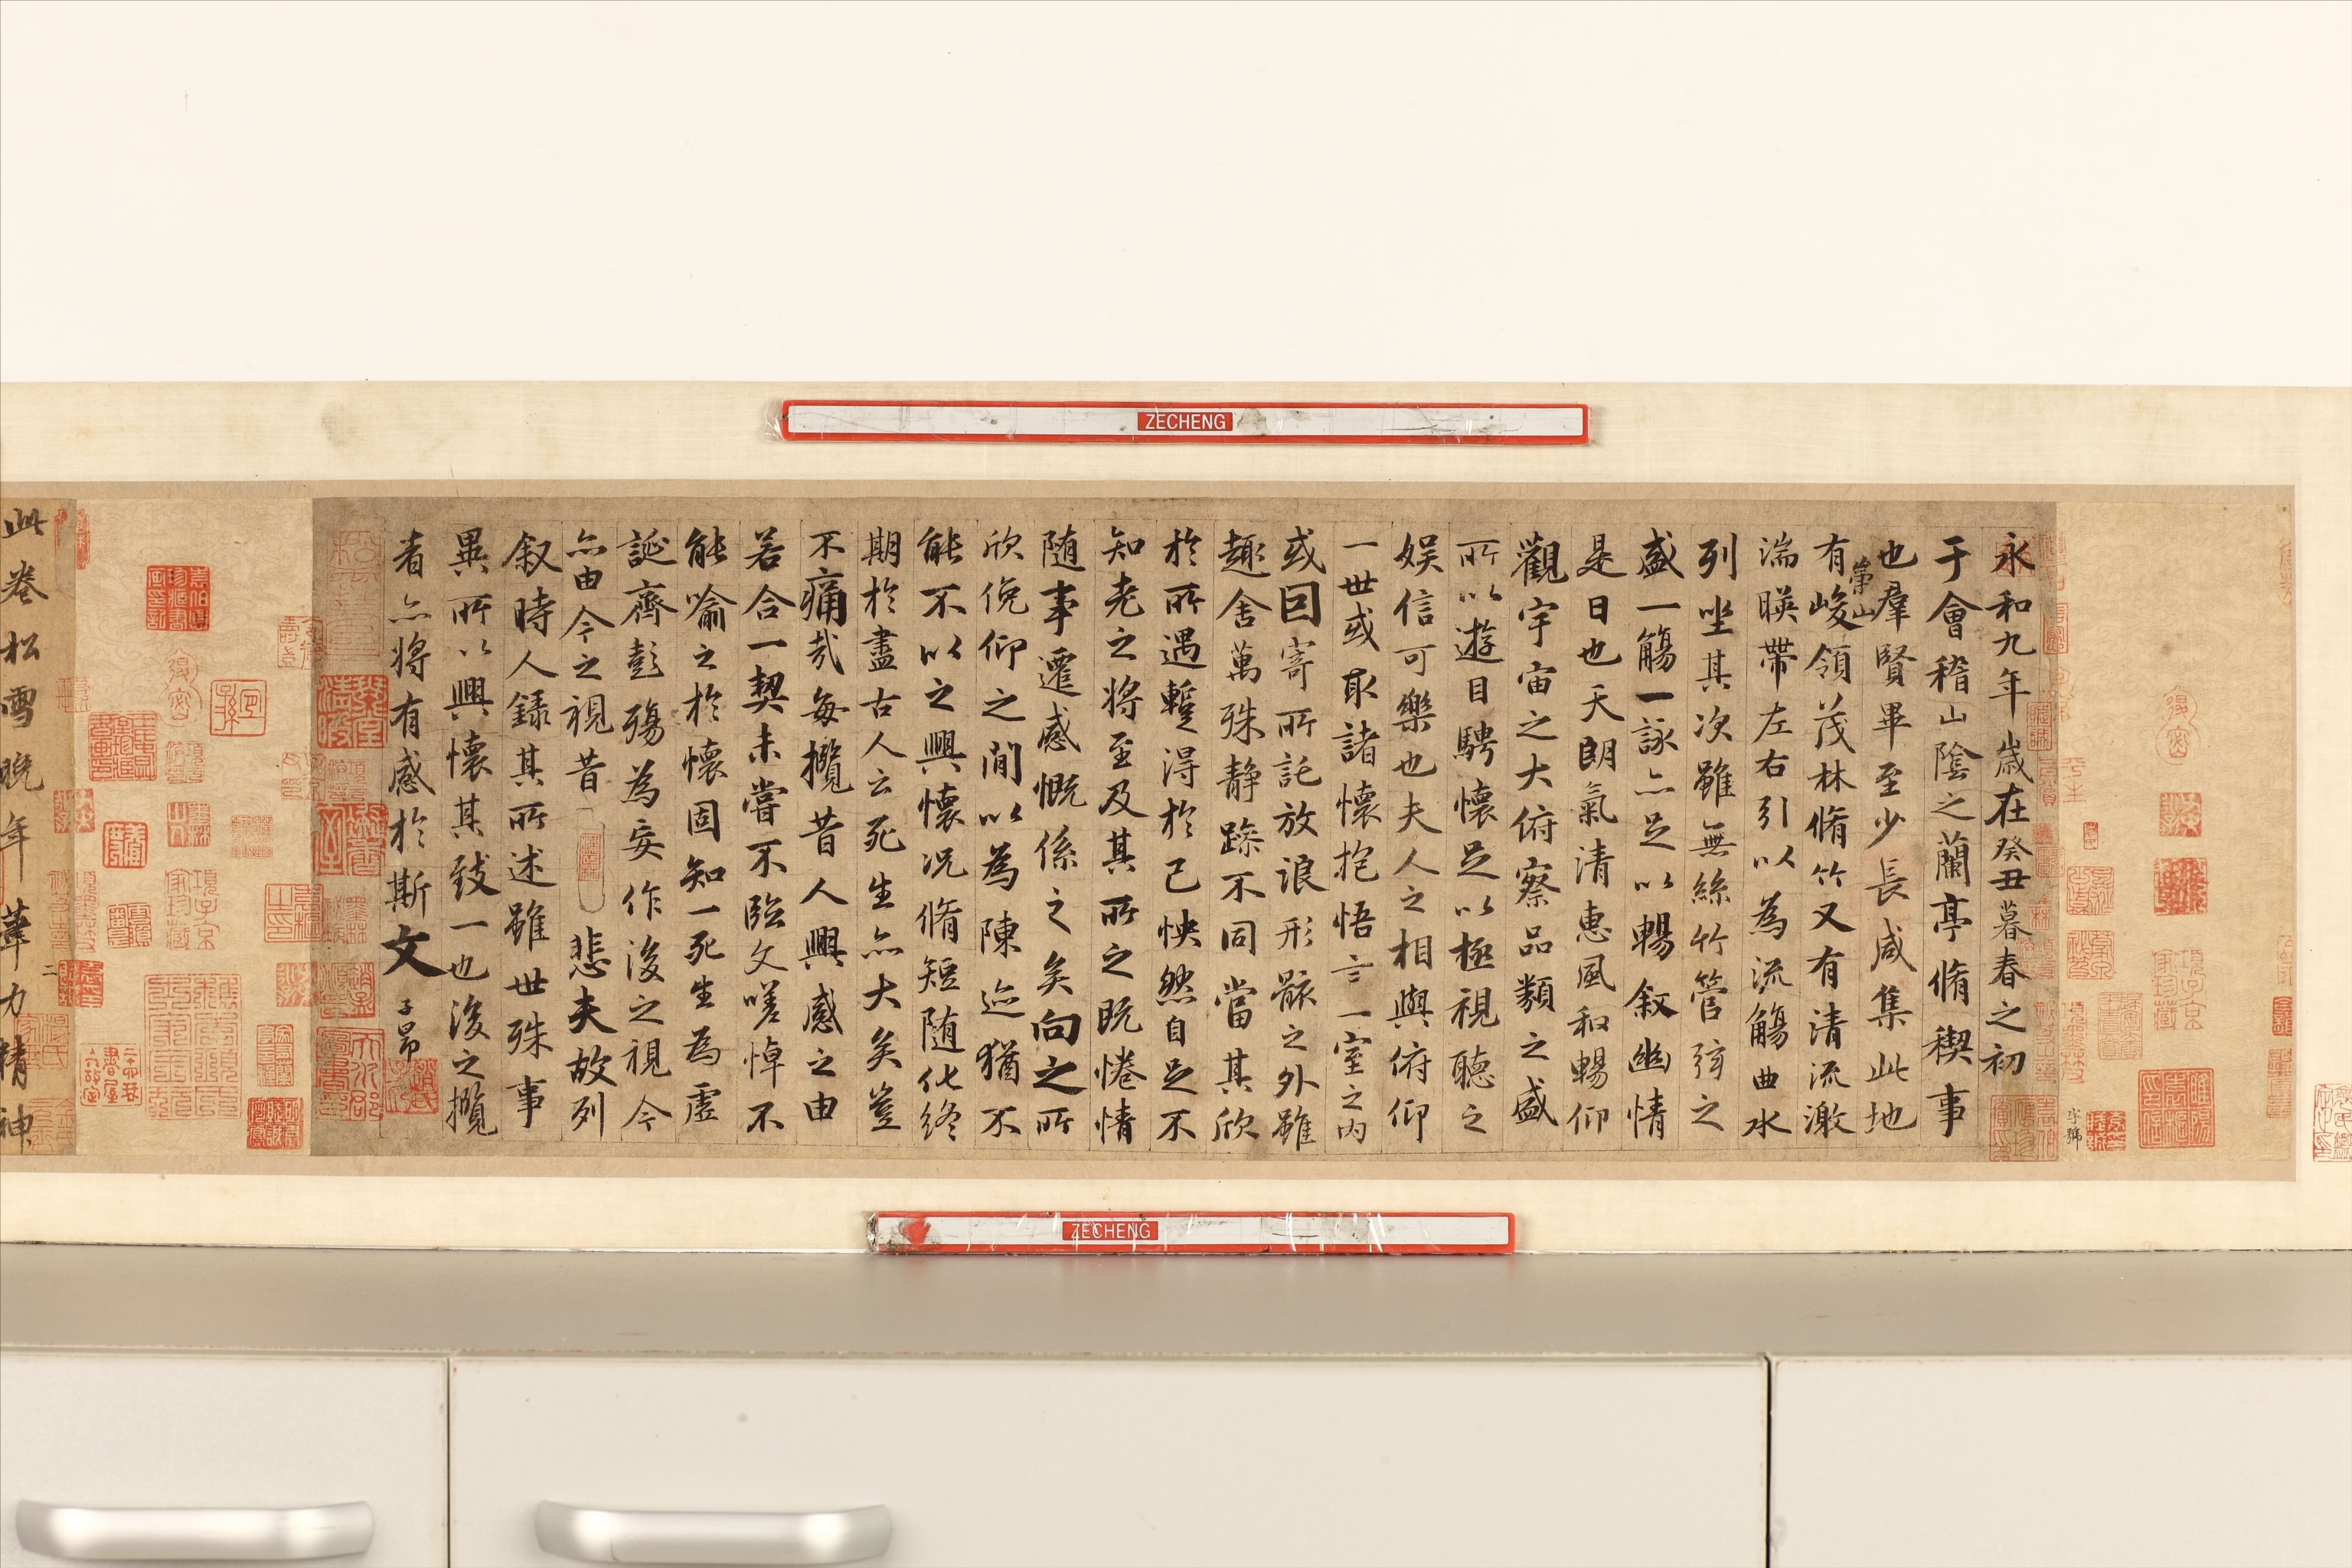 ZECHENG
永和九年歲在癸丑暮春之初
于會稽山陰之蘭亭脩稧事
也羣賢畢至少長咸集此地
崇山
有峻領茂林脩竹又有清流激
湍暎帶左右引以為流觴曲水
列坐其次雖無絲竹管弦之
盛一觴一詠亦足以暢敘幽情
是日也天朗氣清惠風和暢仰
觀宇宙之大俯察品類之盛
所以遊目騁懷足以極視聽之
娛信可樂也夫人之相與俯仰
一世或取諸懷抱悟言一室之內
或因寄所託放浪形骸之外雖
趣舍萬殊静躁不同當其欣
於所遇蹔得於己怏然自足不
知老之將至及其所之既惓情
隨事遷感慨係之矣向之所
欣俛仰之閒以為陳迹猶不
能不以之興懷況脩短隨化終
期於盡古人云死生亦大矣豈
不痛哉每攬昔人興感之由
若合一契未嘗不臨文嗟悼不
能喻之於懷固知一死生為虛
誕齊彭殤為妄作後之視今
亦由今之視昔悲夫故列
叙時人錄其所述雖世殊事
異所以興懷其致一也後之攬
者亦將有感於斯文
子昂
此卷松雪晚年筆力精神
二
字號
ZECHENG